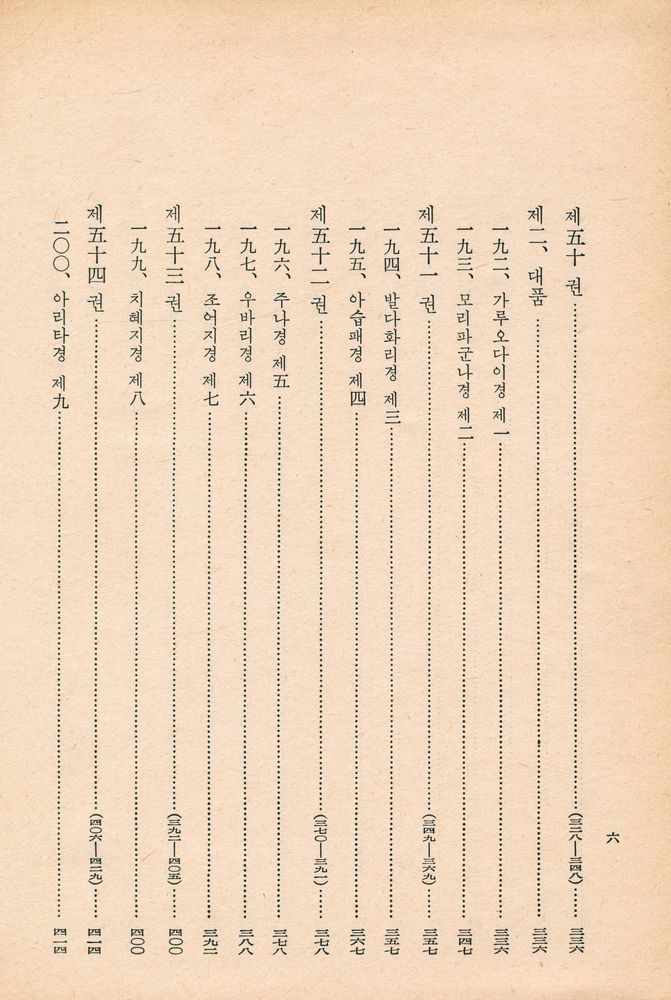 六
제五十 권 (三二八—三四八) 三三六
제二、대품 三三六
一九二、가루오다이경 제一 三三六
一九三、모리파군나경 제二 三四七
제五十一 권 (三四九—三六九) 三五七
一九四、발다화리경 제三 三五七
一九五、아습패경 제四 三六七
제五十二 권 (三七〇—三九一) 三七八
一九六、주나경 제五 三七八
一九七、우바리경 제六 三八八
一九八、조어지경 제七 三九二
제五十三 권 (三九二—四〇五) 四〇〇
一九九、치혜지경 제八 四〇〇
제五十四 권 (四〇六—四二九) 四一四
二〇〇、아리타경 제九 四一四